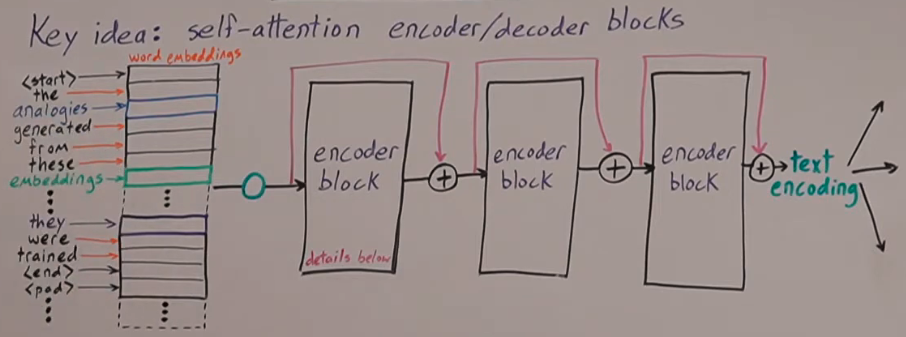 Key idea: self-attention encoder/decoder blocks
word embeddings
<start>
the
analogies
generated
from
these
embeddings
they
were
trained
<end>
<pad>
encoder
block
details below
+
encoder
block
+
encoder
block
+
text
encoding